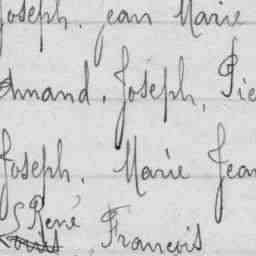 Joseph. Jean Marie
Joseph, Pie
Joseph. Marie Jean
René
Louis François